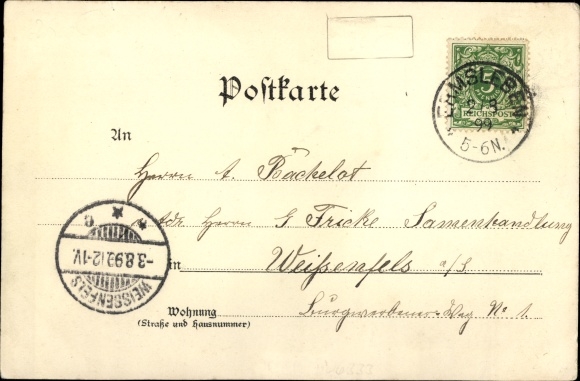 Postkarte
5
REICHSPOST
ERMSLEBEN
2.8
99
5-6N.
An
Herrn A. Bachelot
Adr. Herrn G Fricke Samenhandlung
in Weißenfels a/S.
Wohnung
(Straße und Hausnummer)
Burgwerbener-Weg No 1.
WEISSENFELS
-3.8.99.12-1V.
c